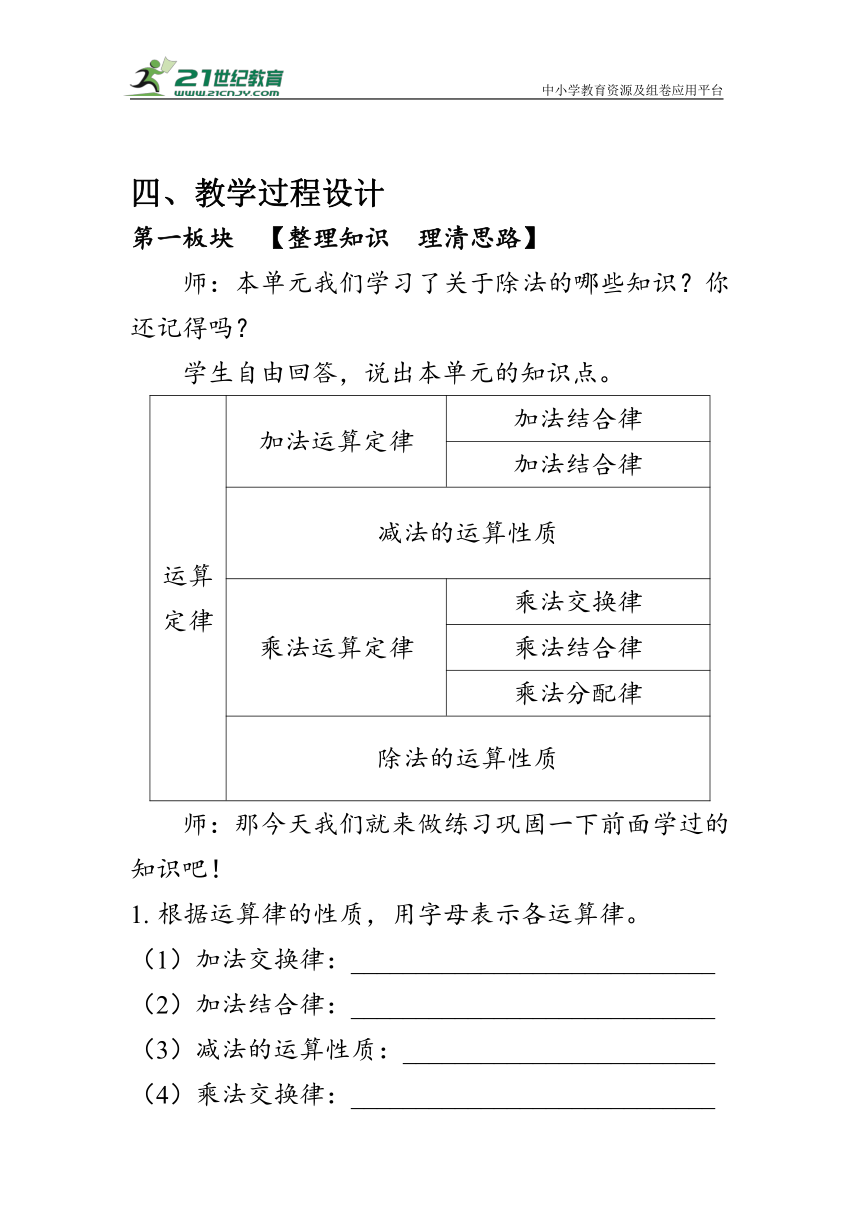 21世纪教育
WWW.21CNJY.COM
中小学教育资源及组卷应用平台
四、教学过程设计
第一板块 【整理知识 理清思路】
师：本单元我们学习了关于除法的哪些知识？你
还记得吗？
学生自由回答，说出本单元的知识点。
运算
定律
加法运算定律
加法结合律
加法结合律
减法的运算性质
乘法运算定律
乘法交换律
乘法结合律
乘法分配律
除法的运算性质
师：那今天我们就来做练习巩固一下前面学过的
知识吧！
1. 根据运算律的性质，用字母表示各运算律。
（1）加法交换律：____________________________
（2）加法结合律：____________________________
（3）减法的运算性质：________________________
（4）乘法交换律：____________________________